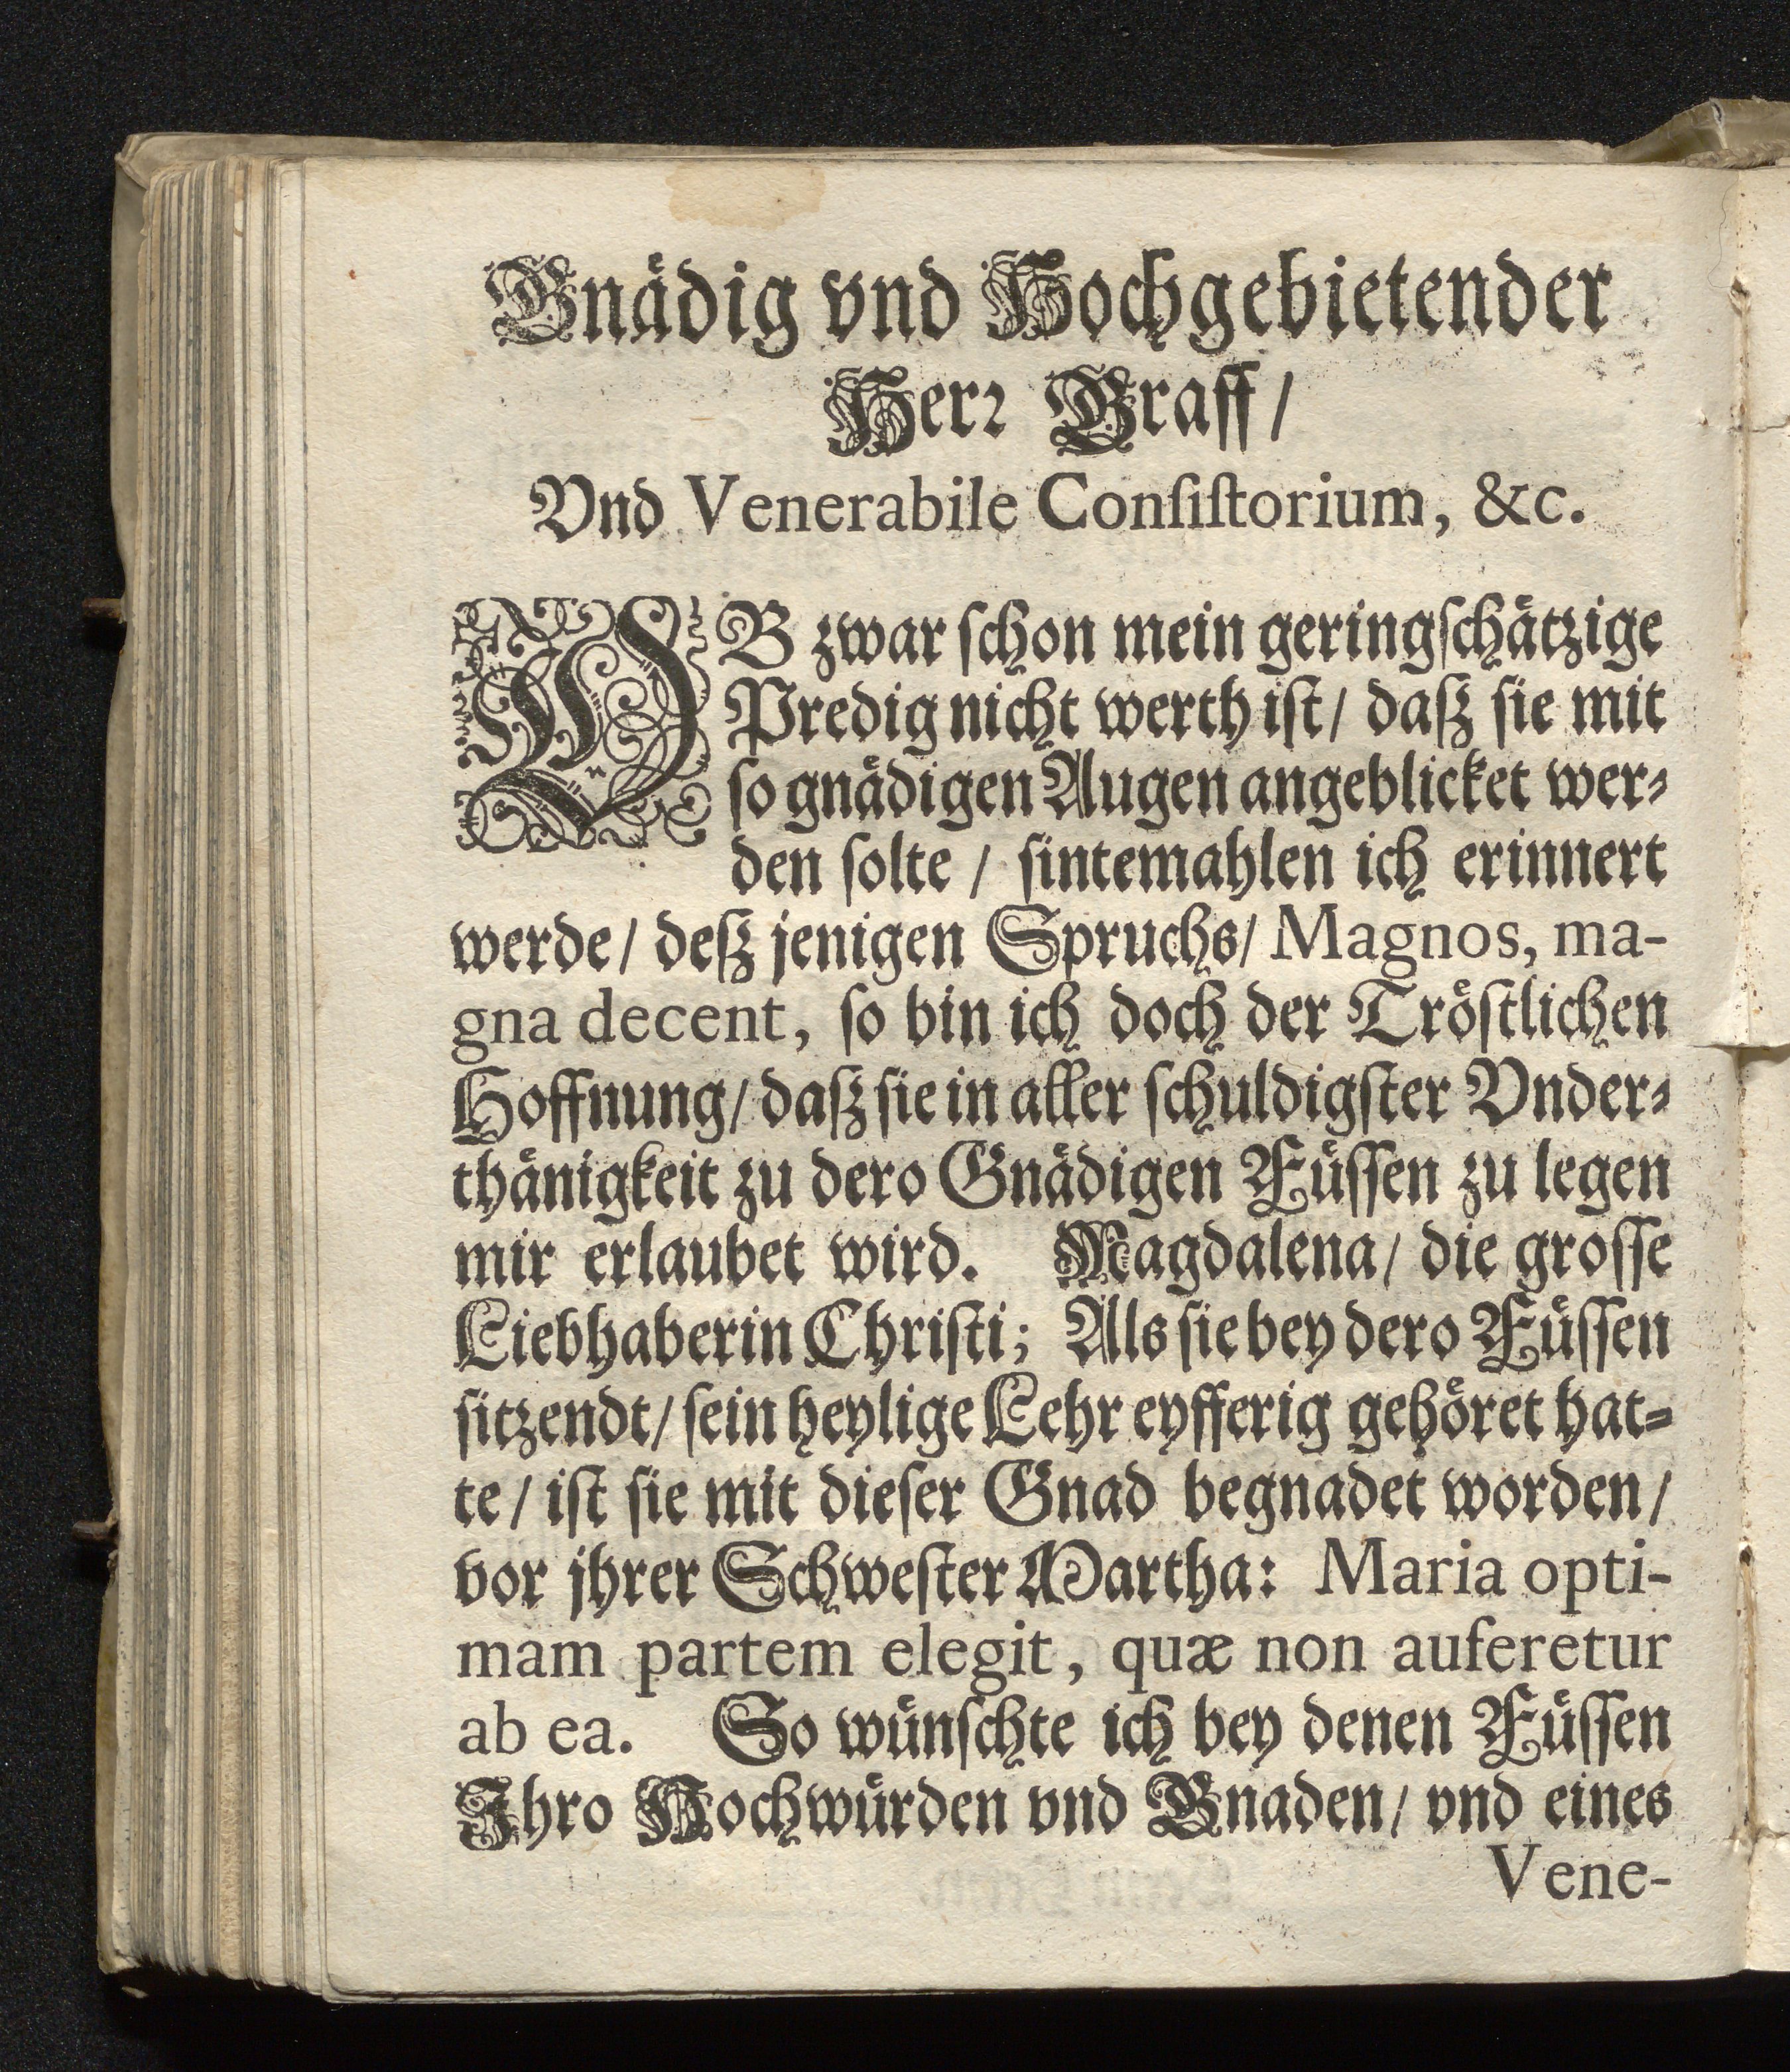 Gnädig vnd Hochgebietender
Herꝛ Graff/
Vnd Venerabile Conſiſtorium, &c.
OB zwar ſchon mein geringſchätzige
Predig nicht werth iſt/ daſz ſie mit
ſo gnädigen Augen angeblicket wer⸗
den ſolte / ſintemahlen ich erinnert
werde/ deſz jenigen Spruchs/ Magnos, ma-
gna decent, ſo bin ich doch der Tröſtlichen
Hoffnung/ daſz ſie in aller ſchuldigſter Vnder⸗
thänigkeit zu dero Gnädigen Füſſen zu legen
mir erlaubet wird. Magdalena/ die groſſe
Liebhaberin Chriſti; Als ſie bey dero Füſſen
ſitzendt/ ſein heylige Lehr eyfferig gehöret hat⸗
te/ iſt ſie mit dieſer Gnad begnadet worden/
vor jhrer Schweſter Martha: Maria opti-
mam partem elegit, quæ non auferetur
ab ea. So wünſchte ich bey denen Füſſen
Ihro Hochwürden vnd Gnaden/ vnd eines
Vene-